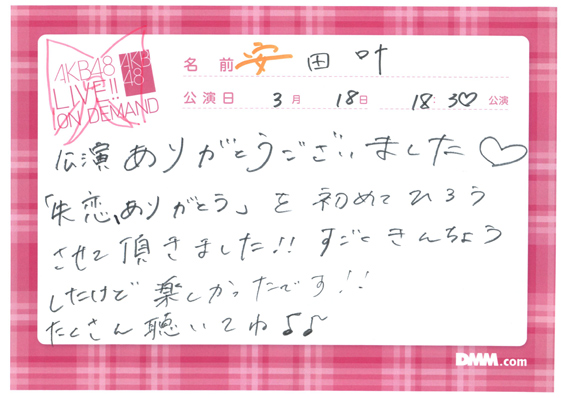 AKB48
LIVE!!
ON DEMAND
AKB
48
名前 安田叶
公演日 3月 18日 18:30 公演
公演ありがとうございました♡
「失恋、ありがとう」を初めてひろう
させて頂きました!! すごくきんちょう
したけど楽しかったです!!
たくさん聴いてね♪♪
DMM.com